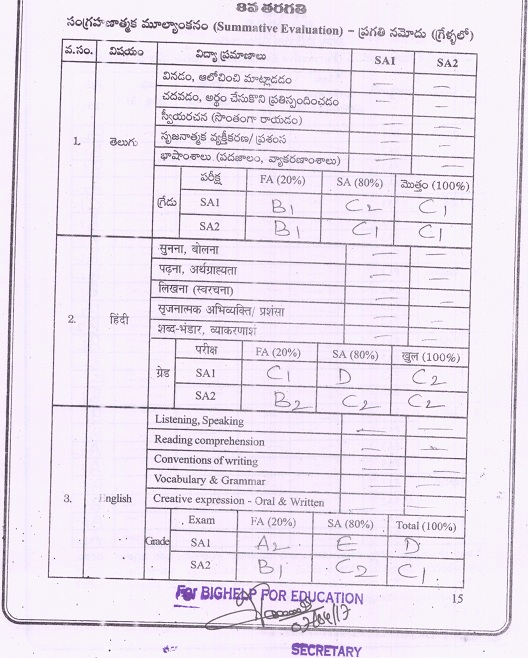 8వ తరగతి
సంగ్రహణాత్మక మూల్యాంకనం (Summative Evaluation) – ప్రగతి నమోదు (గ్రేళ్ళలో)
వ.సం. విషయం విద్యా ప్రమాణాలు SA1 SA2
వినడం, ఆలోచించి మాట్లాడడం — —
చదవడం, అర్థం చేసుకొని ప్రతిస్పందించడం — —
స్వీయరచన (సొంతంగా రాయడం) — —
1. తెలుగు సృజనాత్మక వ్యక్తీకరణ/ ప్రశంస — —
భాషాంశాలు (పదజాలం, వ్యాకరణాంశాలు) — —
పరీక్ష FA (20%) SA (80%) మొత్తం (100%)
గ్రేడు SA1 B1 C2 C1
SA2 B1 C1 C1
सुनना, बोलना — —
पढ़ना, अर्थग्राह्यता — —
लिखना (स्वरचना) — —
2. हिंदी सृजनात्मक अभिव्यक्ति/ प्रशंसा — —
शब्द-भंडार, व्याकरणाशं — —
परीक्ष FA (20%) SA (80%) खुल (100%)
ग्रेड SA1 C1 D C2
SA2 B2 C2 C2
Listening, Speaking — —
Reading comprehension — —
Conventions of writing — —
Vocabulary & Grammar — —
3. English Creative expression - Oral & Written — —
Exam FA (20%) SA (80%) Total (100%)
Grade SA1 A2 E D
SA2 B1 C2 C1
For BIGHELP FOR EDUCATION 15
SECRETARY